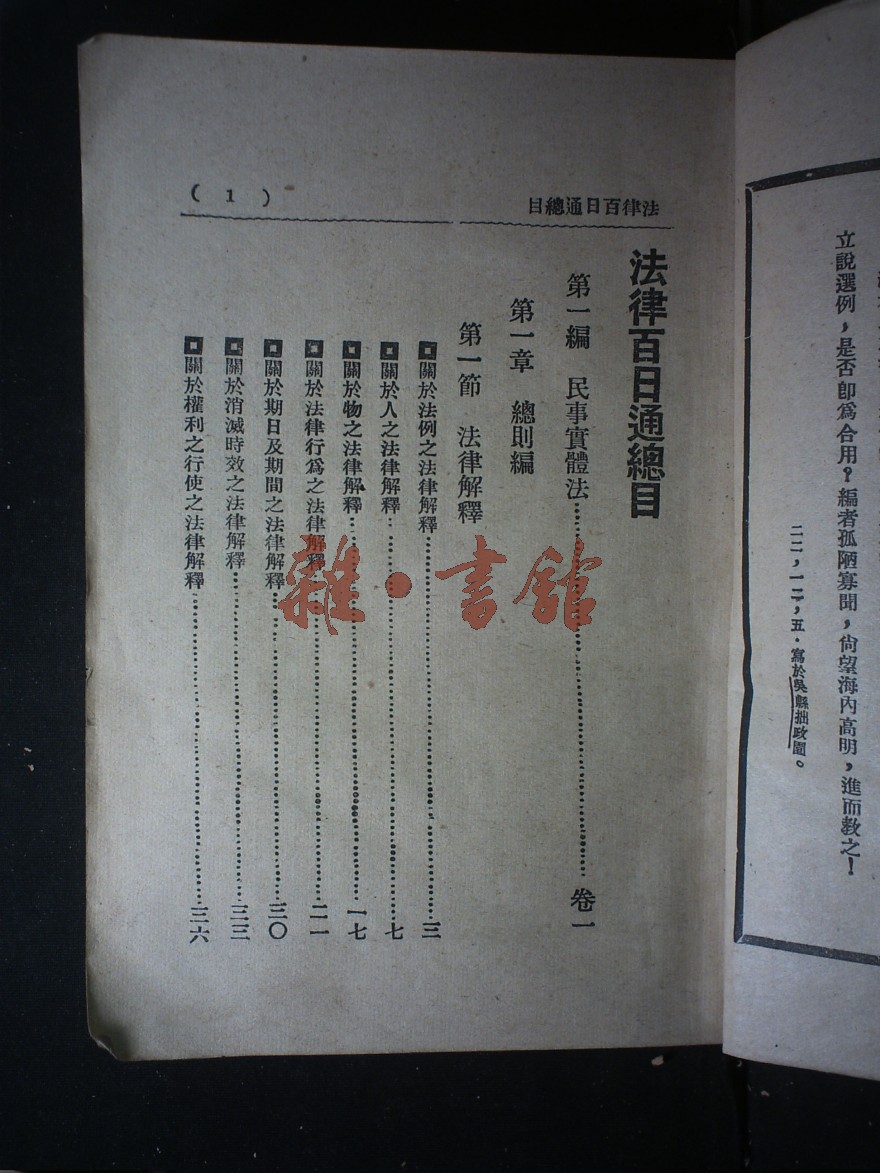 立說選例，是否卽爲合用？編者孤陋寡聞，尙望海內高明，進而敎之！
二二，一二，五．寫於吳縣拙政園。
法律百日通總目
( 1 )
法律百日通總目
第一編　民事實體法……卷一
第一章　總則編
第一節　法律解釋
關於法例之法律解釋……三
關於人之法律解釋……七
關於物之法律解釋……一七
關於法律行爲之法律解釋……二一
關於期日及期間之法律解釋……三〇
關於消滅時效之法律解釋……三三
關於權利之行使之法律解釋……三六
雜·書館